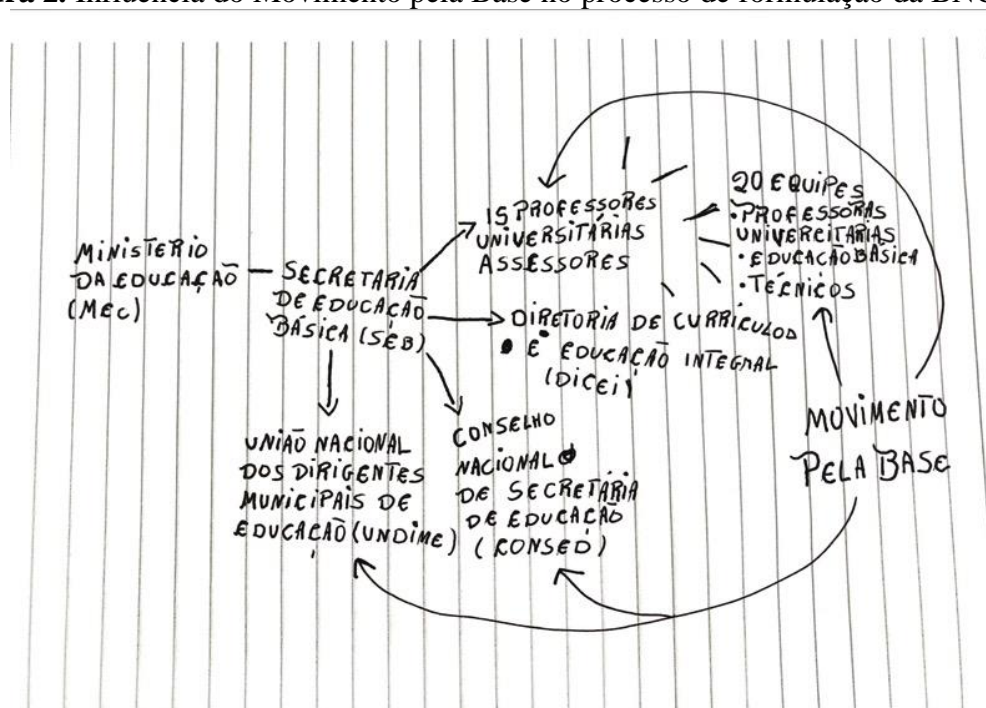 ra 2. Influência do Movimento pela Base no processo de formulação da BNC
MINISTÉRIO
DA EDUCAÇÃO
(MEC)
SECRETARIA
DE EDUCAÇÃO
BÁSICA (SEB)
15 PROFESSORES
UNIVERSITÁRIAS
ASSESSORES
20 EQUIPES
• PROFESSORAS
UNIVERCITÁRIAS
• EDUCAÇÃO BÁSICA
• TÉCNICOS
DIRETORIA DE CURRÍCULOS
E EDUCAÇÃO INTEGRAL
(DICEI)
UNIÃO NACIONAL
DOS DIRIGENTES
MUNICIPAIS DE
EDUCAÇÃO (UNDIME)
CONSELHO
NACIONAL
DE SECRETÁRIA
DE EDUCAÇÃO
(CONSED)
MOVIMENTO
PELA BASE